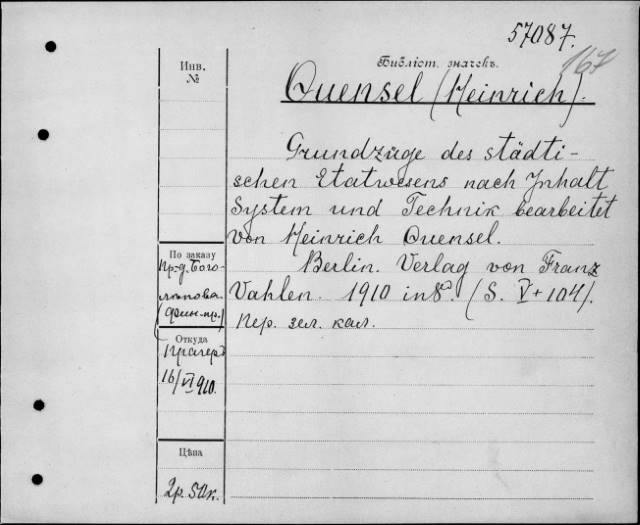 57087.
Библіот. значекъ.
167
Инв.
№
Quensel (Heinrich).
Grundzüge des städti-
schen Etatwesens nach Inhalt
System und Technik bearbeitet
von Heinrich Quensel.
Berlin. Verlag von Franz
Vahlen. 1910 in 8º. (S. V + 104).
пер. зел. кал.
По заказу
пр-д. Бого-
лѣпова
(фин-пр.)
Откуда
Прагеръ
16/VI 910.
Цѣна
2р. 50к.